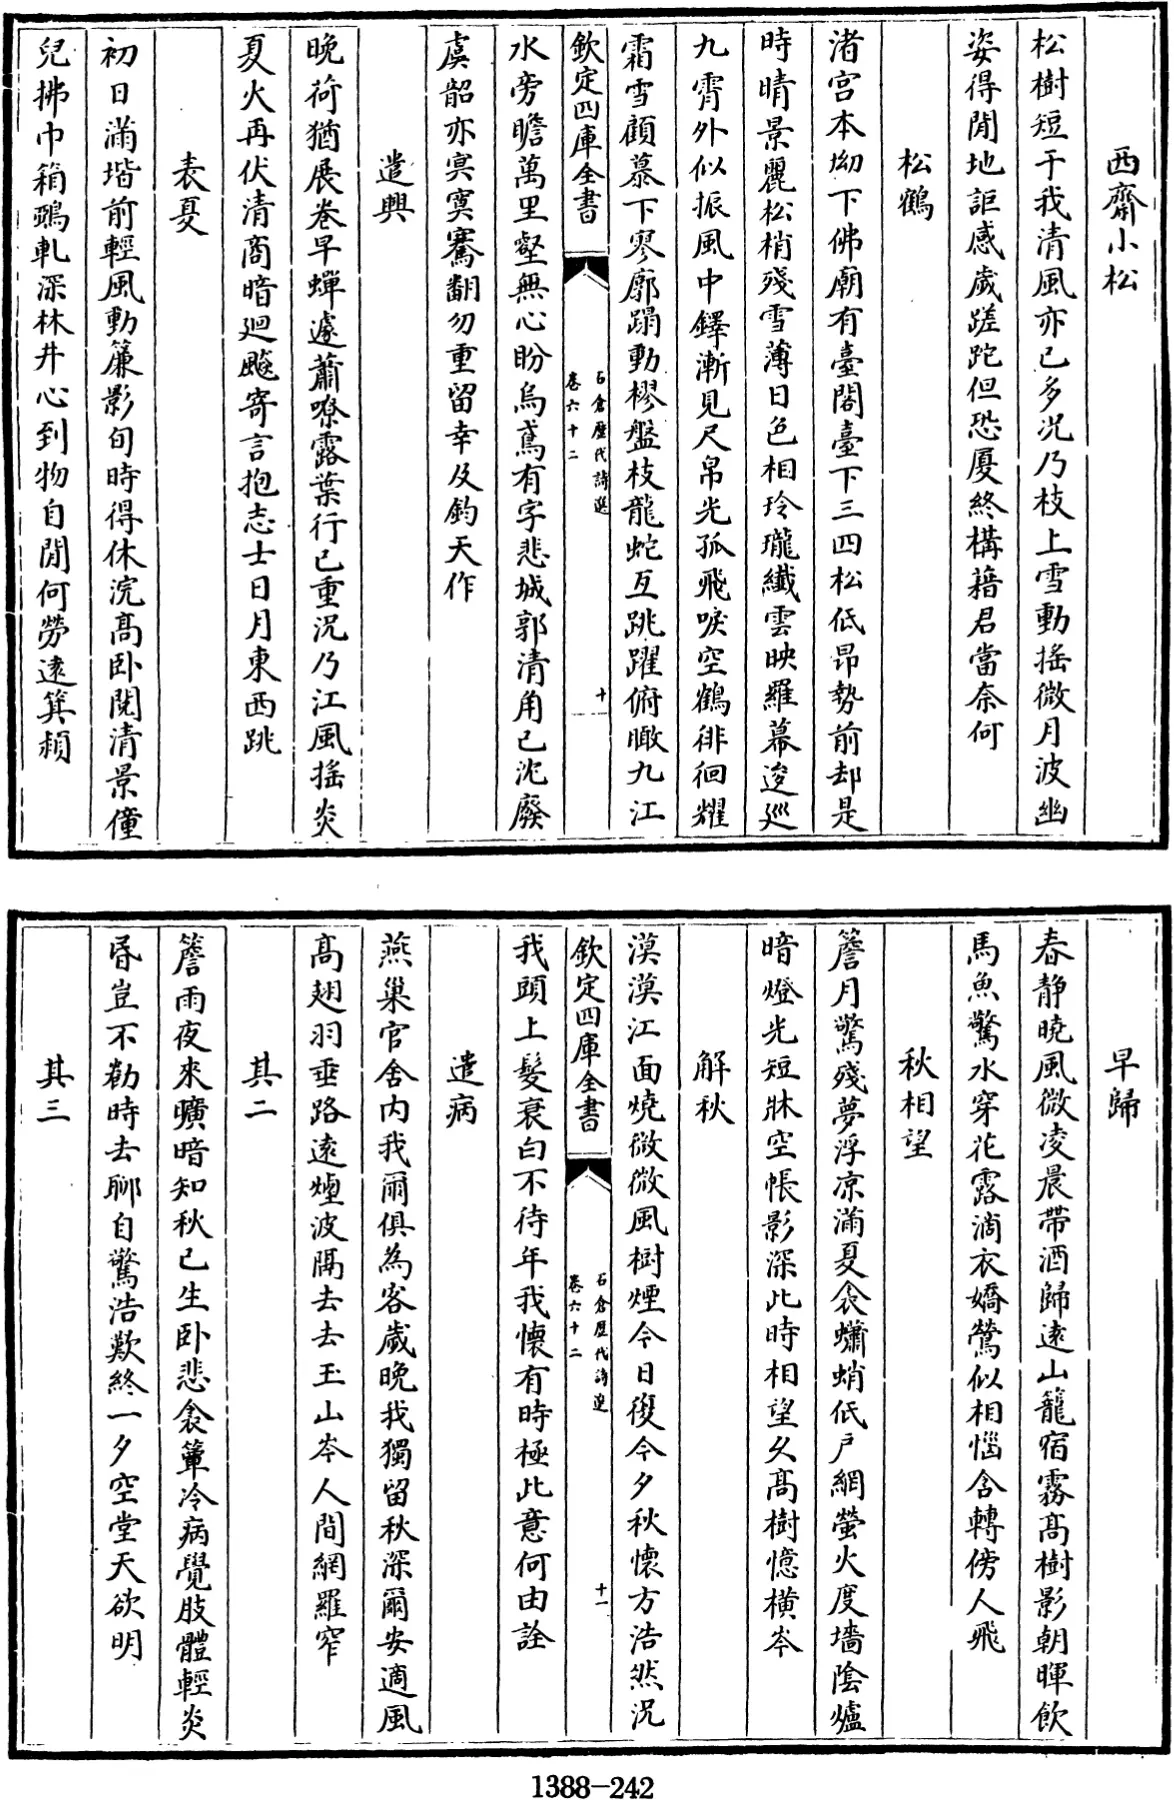 西齋小松
松樹短于我清風亦已多况乃枝上雪動搖微月波幽
姿得閒地詎感歲蹉跎但恐厦終構藉君當奈何
松鶴
渚宫本坳下佛廟有臺閣臺下三四松低昂勢前却是
時晴景麗松梢殘雪薄日色相玲瓏纖雲映羅幕逡巡
九霄外似振風中鐸漸見尺帛光孤飛唳空鶴徘徊耀
霜雪顧慕下寥廓蹋動樛盤枝龍蛇互跳躍俯瞰九江
欽定四庫全書
石倉歷代詩選
卷六十二
十
水旁瞻萬里壑無心盼烏鳶有字悲城郭清角已沈廢
虞韶亦冥寞騫翻勿重留幸及鈞天作
遣興
晚荷猶展卷早蟬遽蕭嘹露葉行已重况乃江風摇炎
夏火再伏清商暗廻飈寄言抱志士日月東西跳
表夏
初日滿堦前輕風動簾影旬時得休浣髙卧閲清景僮
兒拂巾箱鵶軋深林井心到物自閒何勞逺箕潁
早歸
春静曉風微凌晨帶酒歸逺山籠宿霧髙樹影朝暉飲
馬魚驚水穿花露滴衣嬌鶯似相惱含轉傍人飛
秋相望
簷月驚殘夢浮凉滿夏衾蠨蛸低户網螢火度墻陰爐
暗燈光短牀空帳影深此時相望乆髙樹憶橫岑
解秋
漠漠江面燒微微風樹煙今日復今夕秋懷方浩然况
欽定四庫全書
石倉歷代詩選
卷六十二
十一
我頭上髮衰白不待年我懷有時極此意何由詮
遣病
燕巢官舍内我爾俱為客歲晚我獨留秋深爾安適風
髙翅羽垂路逺煙波隔去去玉山岑人間網羅窄
其二
簷雨夜來曠暗知秋已生卧悲衾簟冷病覺肢體輕炎
昏豈不勧時去聊自驚浩歎終一夕空堂天欲明
其三
1388-242